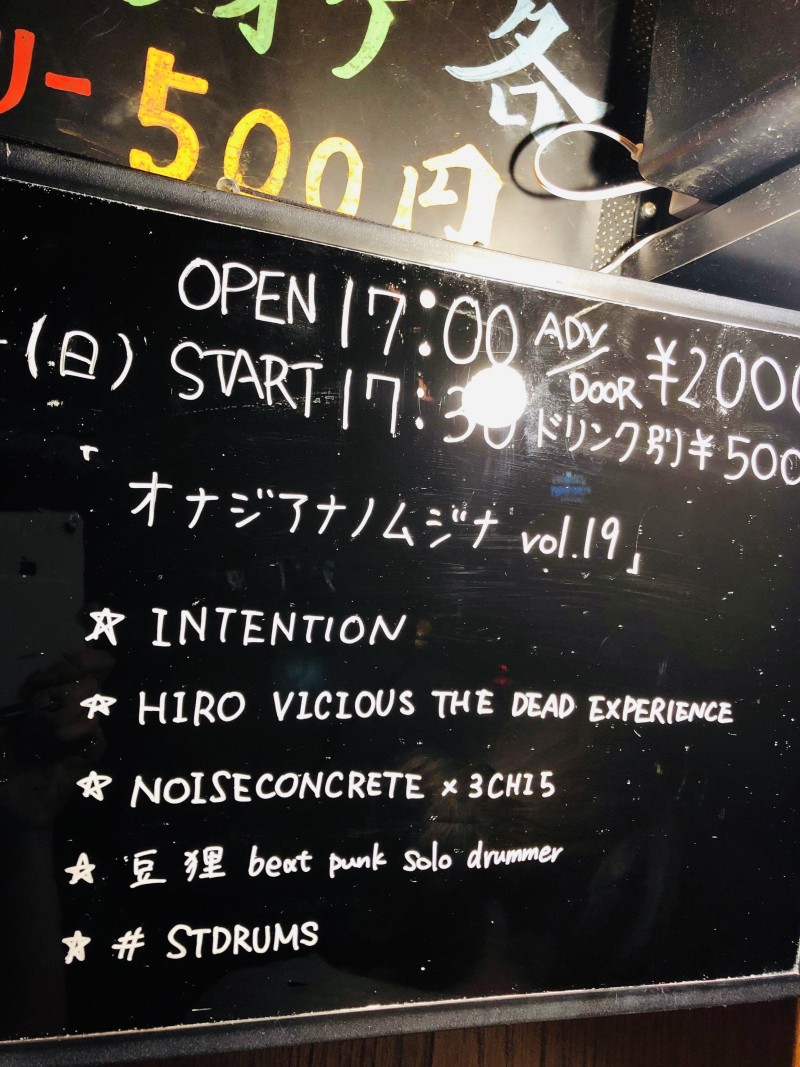 ー500円
OPEN 17:00 ADV/DOOR ¥2000
(日) START 17:30 ドリンク別¥500
「オナジアナノムジナ vol.19」
☆ INTENTION
☆ HIRO VICIOUS THE DEAD EXPERIENCE
☆ NOISECONCRETE × 3CHI5
☆ 豆狸 beat punk solo drummer
☆ # STDRUMS